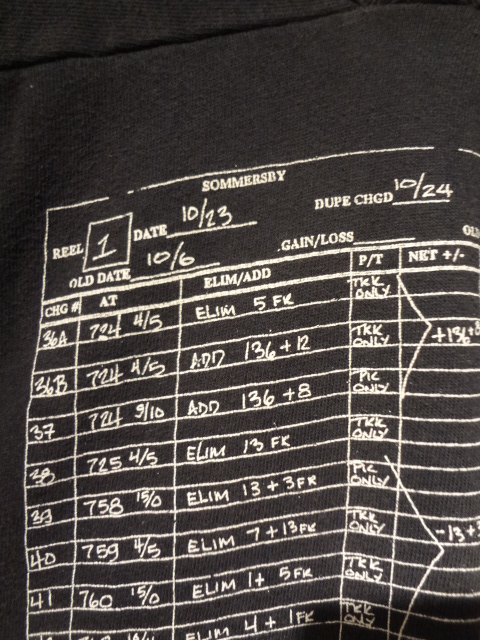 SOMMERSBY
REEL 1 DATE 10/23 DUPE CHGD 10/24
OLD DATE 10/6 GAIN/LOSS
CHG # AT ELIM/ADD P/T NET +/-
36A 724 4/5 ELIM 5 FR TRK ONLY
36B 724 4/5 ADD 136 + 12 TRK ONLY
37 724 9/10 ADD 136 + 8 PIC ONLY
38 725 4/5 ELIM 13 FR TRK ONLY
39 758 15/0 ELIM 13 + 3 FR PIC ONLY
40 759 4/5 ELIM 7 + 13 FR TRK ONLY
41 760 15/0 ELIM 1 + 5 FR TRK ONLY
ELIM 4 + 1 FR TRK ONLY